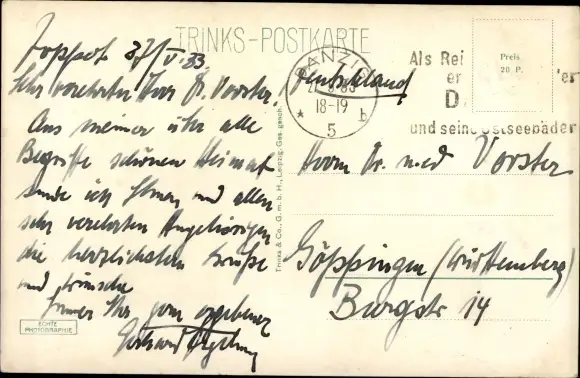 TRINKS-POSTKARTE
Zoppot 27/V.33.
Sehr verehrter Herr Dr. Vorster,
Aus meiner über alle
Begriffe schönen Heimat
sende ich Ihnen und allen
sehr verehrten Angehörigen
die herzlichsten Grüße
und Wünsche
Immer Ihr ganz ergebener
Gerhard
ECHTE
PHOTOGRAPHIE
Trinks & Co., G. m. b. H., Leipzig. Ges. gesch.
DANZIG
18-19
* 5 b
Als Rei
er
D
und seine Ostseebäder
Preis
20 P.
Deutschland
Herrn Dr. med Vorster
Göppingen (Württemberg)
Burgstr 14